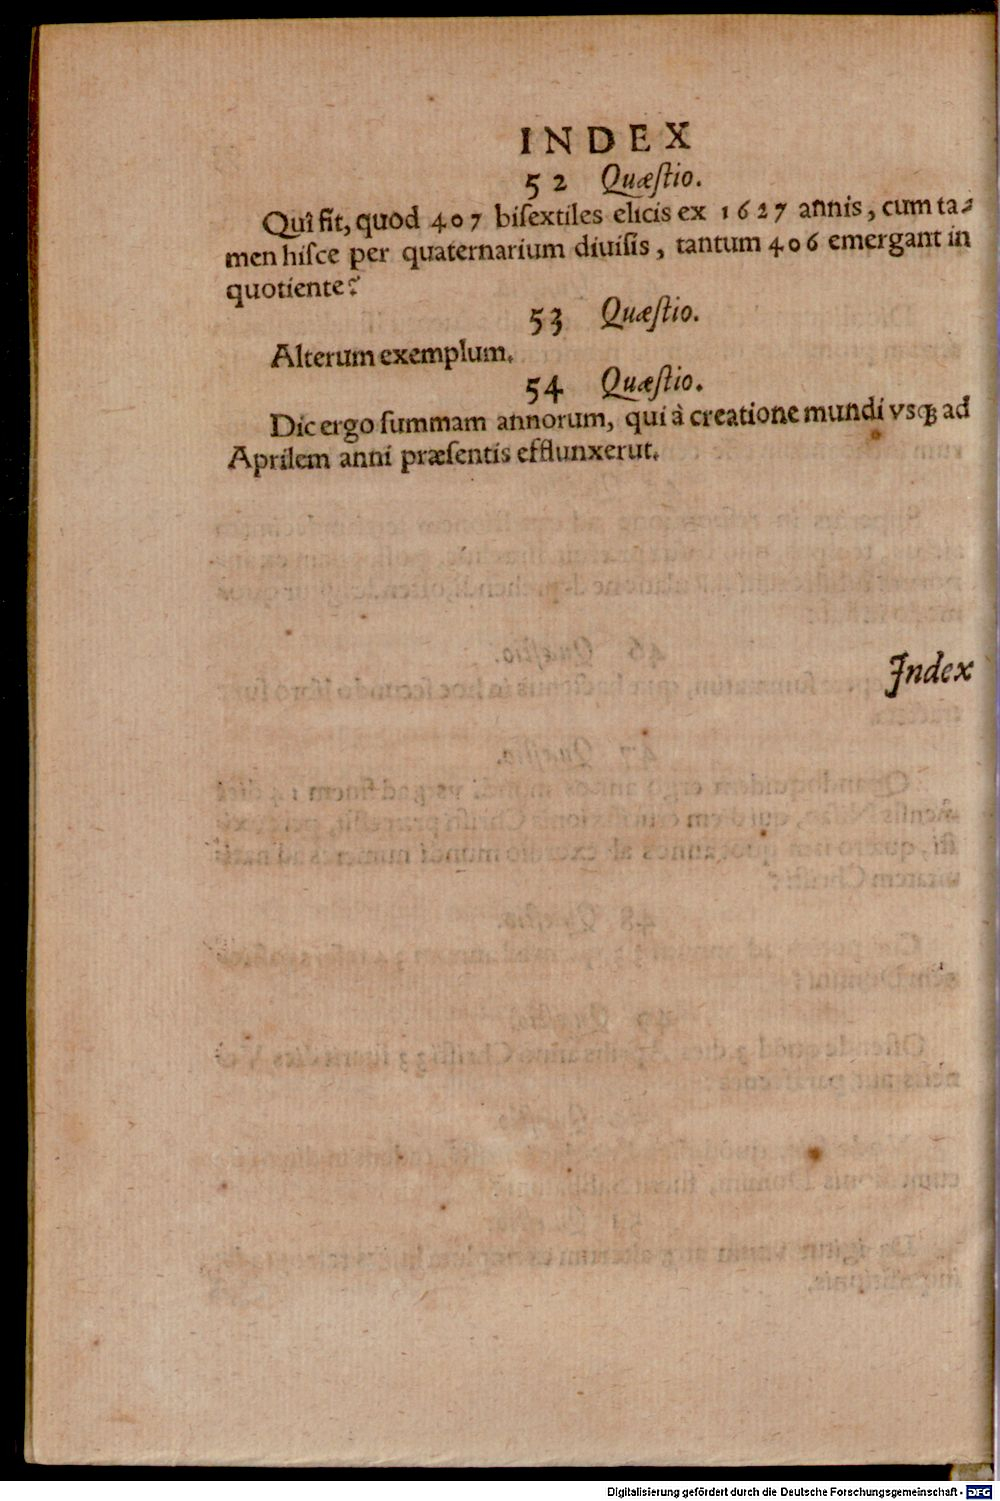 INDEX
52 Quæſtio.
Quî fit, quod 407 biſextiles elicis ex 1627 annis, cum ta-
men hiſce per quaternarium diuiſis, tantum 406 emergant in
quotiente?
53 Quæſtio.
Alterum exemplum.
54 Quæſtio.
Dic ergo ſummam annorum, qui à creatione mundi vsq; ad
Aprilem anni præſentis efflunxerut.
Index
Digitalisierung gefördert durch die Deutsche Forschungsgemeinschaft - DFG